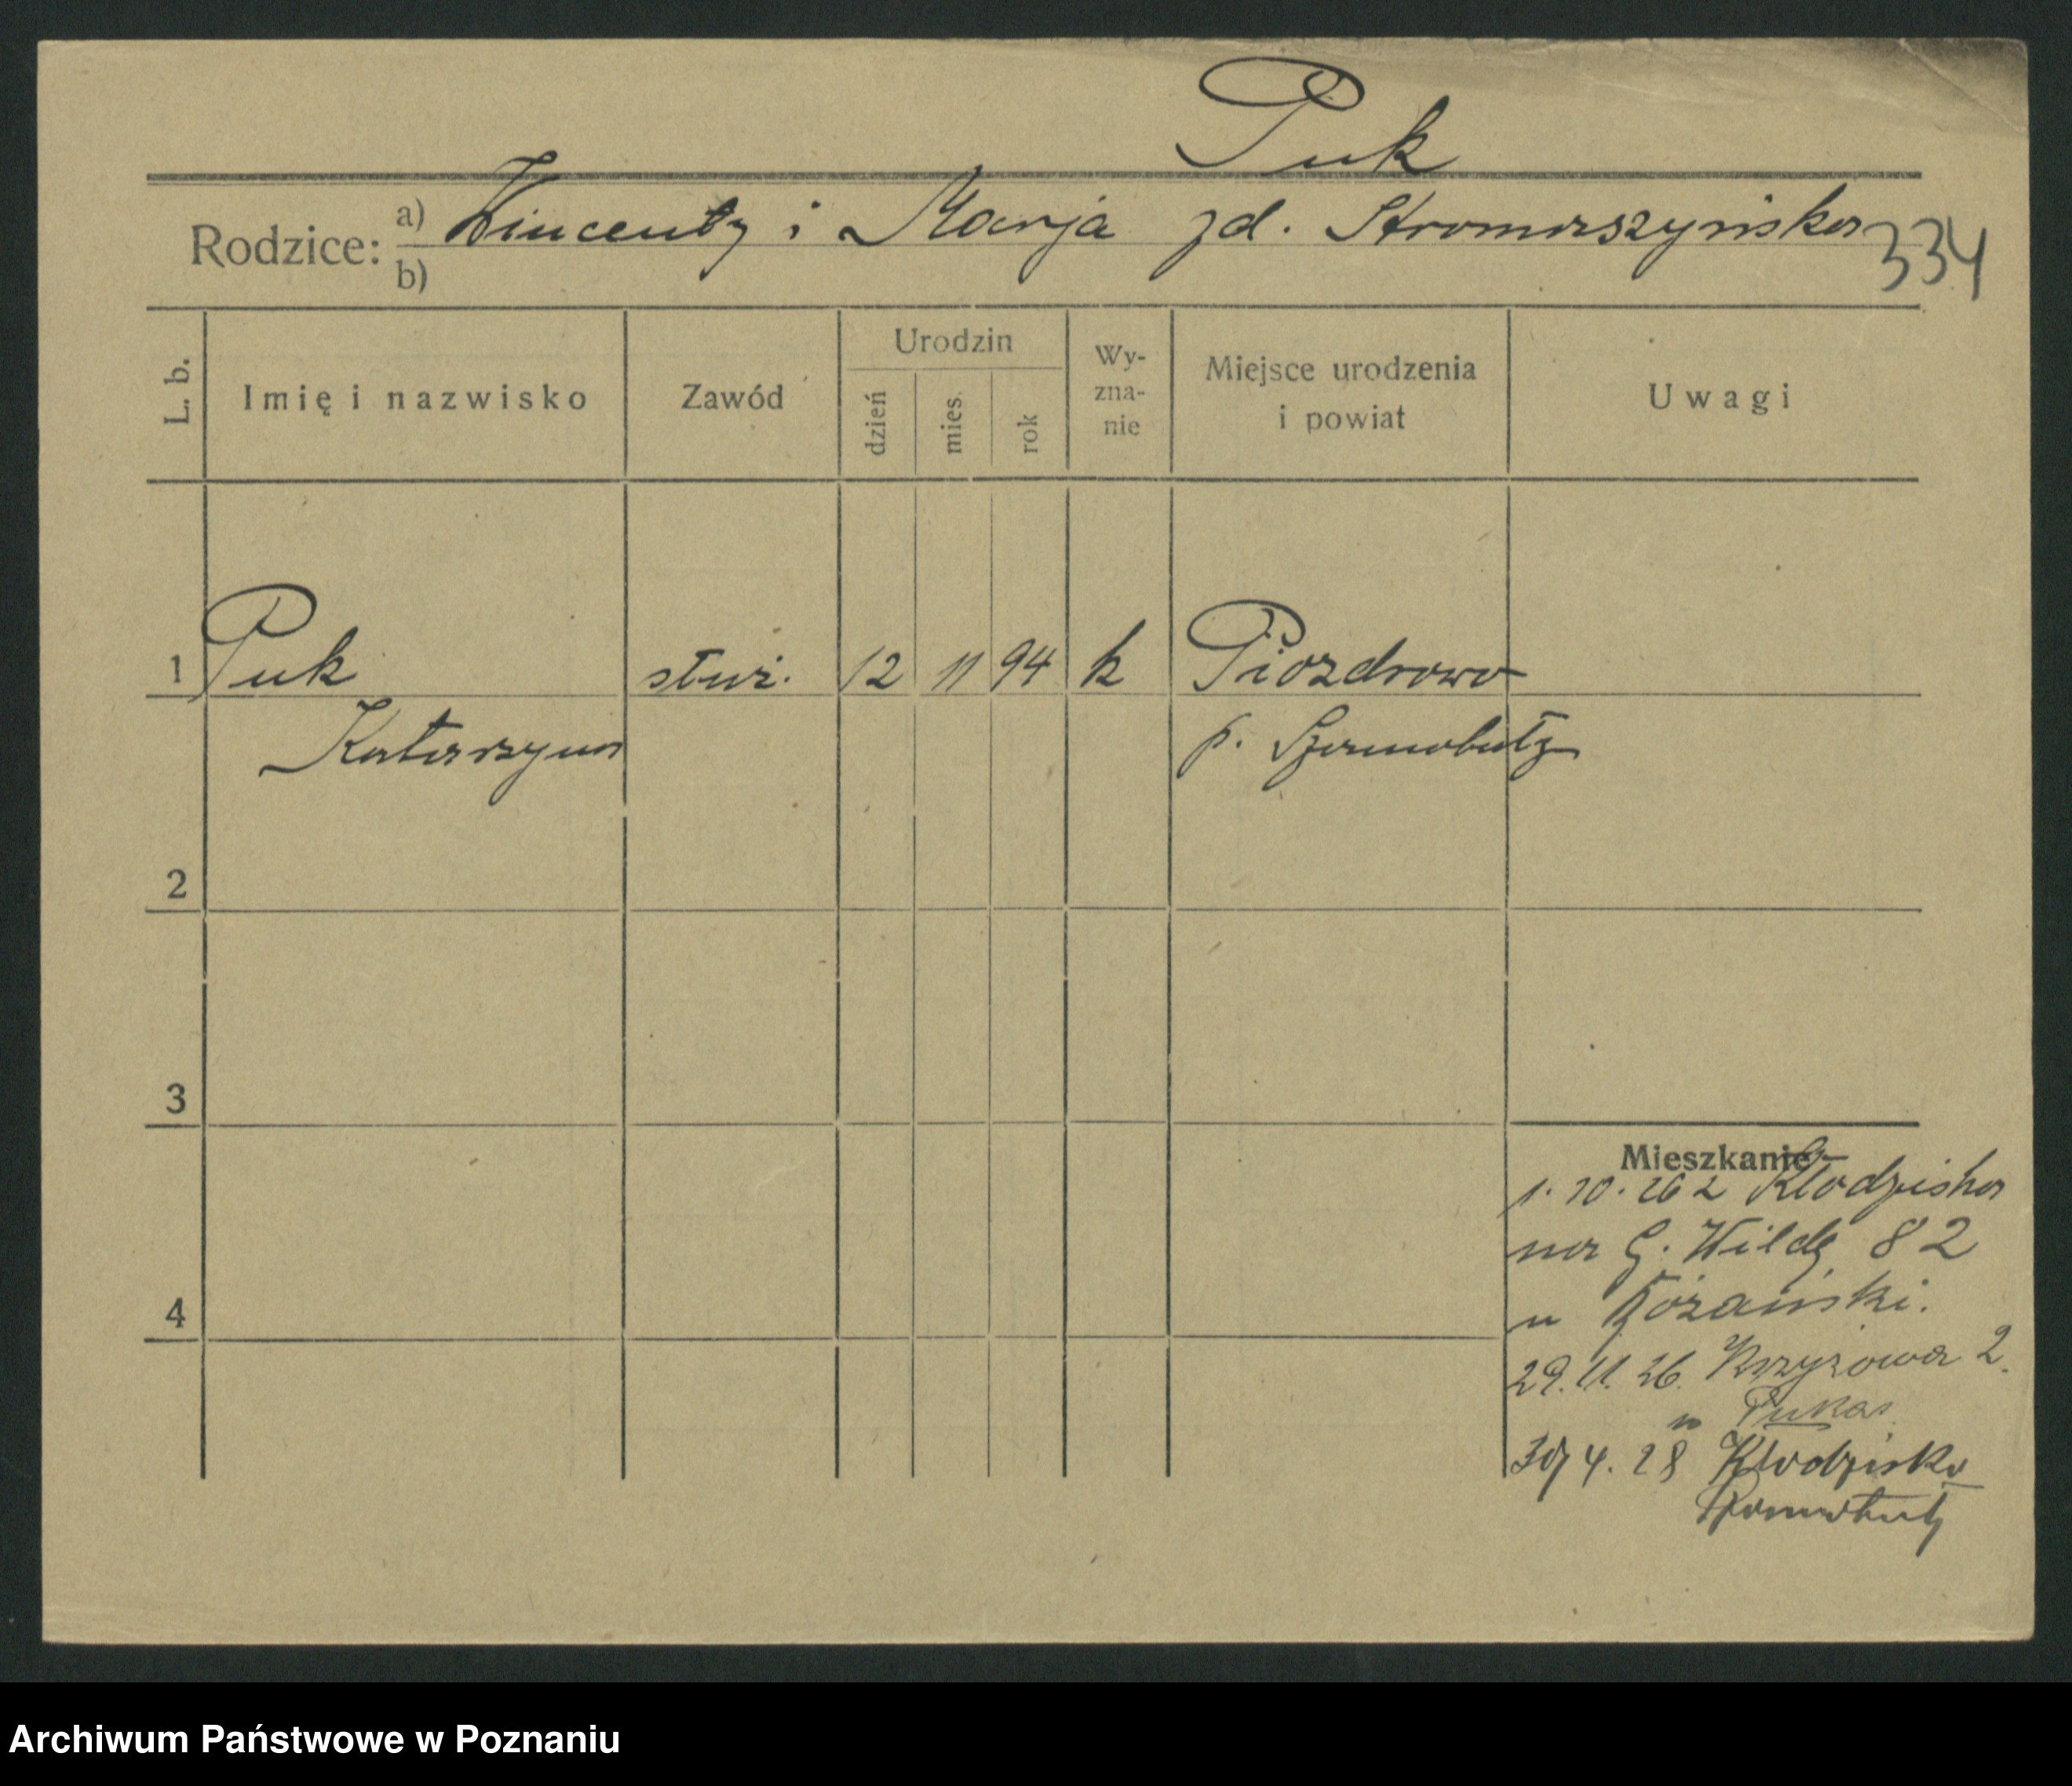 Puk
Rodzice: a) Wincenty i Marja zd. Stromaszyńska
334
b)
L. b.
Imię i nazwisko
Zawód
Urodzin
dzień
mies.
rok
Wy-
zna-
nie
Miejsce urodzenia
i powiat
Uwagi
1 Puk służ. 12 11 94 k Piozdrowo
Katarzyna p. Szamotuły
2
3
4
Mieszkanie
1. 10. 26 z Kłodziska
na G. Wildę 82
u Różański.
29. 11. 26. Krzyżowa 2.
u Pukas
30/4. 28 Kłodzisko
Szamotuły
Archiwum Państwowe w Poznaniu